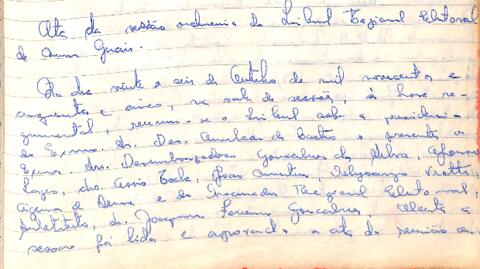 Ata da sessão ordinária do Tribunal Regional Eleitoral
de Minas Gerais.
Ao dia vinte e seis de Outubro de mil novecentos e
cinquenta e cinco, na sala de sessão, à hora re-
gimental, reuniu-se o Tribunal sob a presidência
do Exmo. Sr. Des. Amilcar de Castro e presentes os
Exmos. Srs. Desembargadores Gonçalves da Silva, Afonso
Lages, drs. João
e do Procurador Regional Eleitoral,
substituto, dr. Joaquim Ferreira Gonçalves. Aberta a
sessão foi lida e aprovada a ata da reunião an-